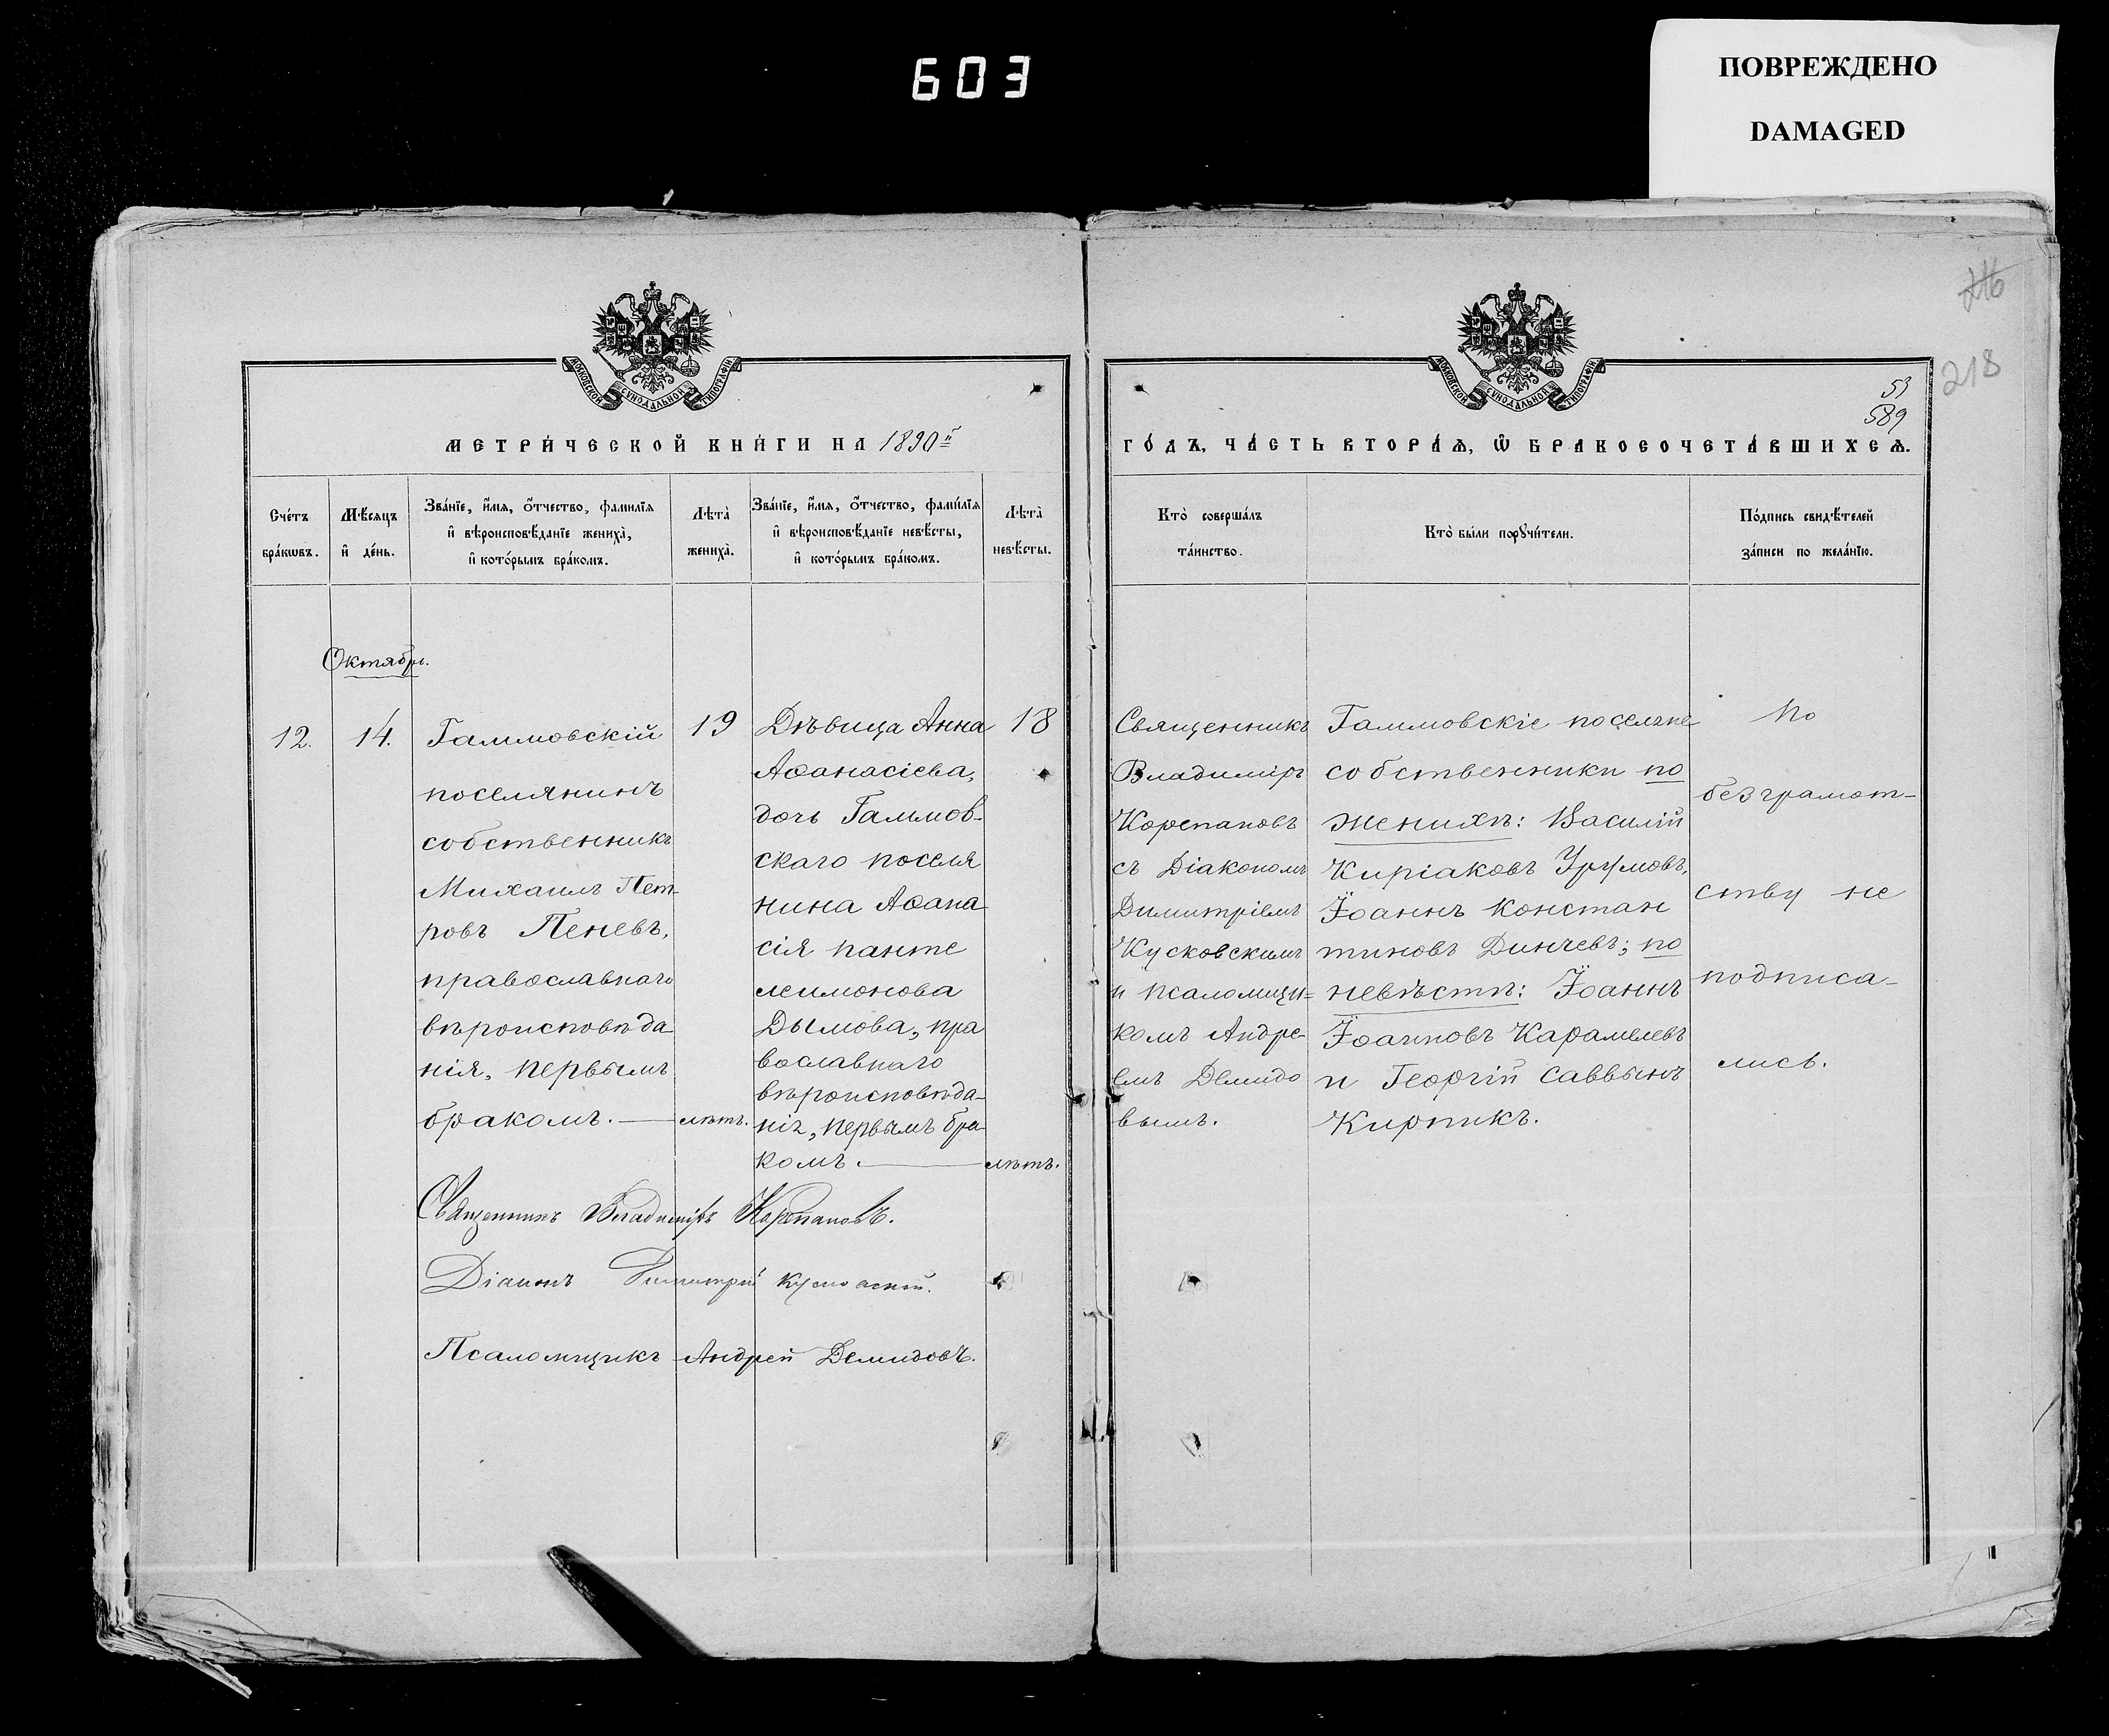 603
ПОВРЕЖДЕНО
DAMAGED
216
218
МОСКОВСКОЙ СѴНОДАЛЬНОЙ ТИПОГРАФІИ
МОСКОВСКОЙ СѴНОДАЛЬНОЙ ТИПОГРАФІИ
53
589
МЕТРИ́ЧЕСКОЙ КНИ́ГИ НА 1890й
ГО́ДЪ, ЧА́СТЬ ВТОРА́Ѧ, Ѿ БРАКОСОЧЕТА́ВШИХСѦ.
Сче́тъ
бра́кѡвъ.
Мѣ́сяцъ
и҆ де́нь.
Зва́нїе, и҆́мѧ, ѻ҆́тчество, фами́лїѧ
и҆ вѣроисповѣ́данїе жениха̀,
и҆ кото́рымъ бра́комъ.
Лѣта̀
жениха̀.
Зва́нїе, и҆́мѧ, ѻ҆́тчество, фами́лїѧ
и҆ вѣроисповѣ́данїе невѣ́сты,
и҆ кото́рымъ бра́комъ.
Лѣта̀
невѣ́сты.
Кто̀ соверша́лъ
та́инство.
Кто̀ бы́ли порꙋчи́тели.
По́дпись свидѣ́телей
за́писи по жела́нїю.
Октябрь.
12.
14.
Галмовскій
поселянинъ
собственникъ
Михаилъ Пет-
ровъ Пеневъ,
православнаго
вѣроисповѣда
нія, первымъ
бракомъ. —
19
лѣтъ.
Дѣвица Анна
Аѳанасіева,
дочь Галмов-
скаго поселя
нина Аѳана
сія панте
леимонова
Дымова, пра
вославнаго
вѣроисповѣда-
нія, первымъ бра-
комъ. —
18
лѣтъ.
Священникъ
Владиміръ
Корепановъ
съ Діакономъ
Димитріемъ
Кусковскимъ
и псаломщи=
комъ Андре-
емъ Демидо
вымъ.
Галмовскіе поселяне
собственники по
женихѣ: Василій
Киріаковъ Урумовъ,
Іоаннъ Констан
тиновъ Динчевъ; по
невѣстѣ: Іоаннъ
Іоанновъ Карамелевъ
и Георгій Саввынъ
Кирпикъ.
По
безграмот-
ству не
подписа-
лись.
Священникъ Владиміръ Корепановъ.
Діаконъ Димитрій Кусковскій.
Псаломщикъ Андрей Демидовъ.